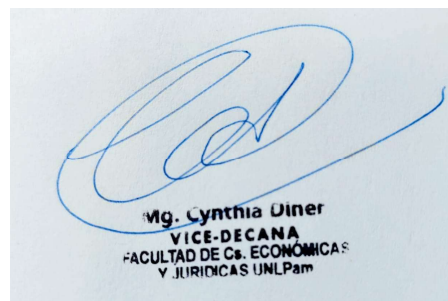 Mg. Cynthia Diner
VICE-DECANA
FACULTAD DE Cs. ECONÓMICAS
Y JURIDICAS UNLPam